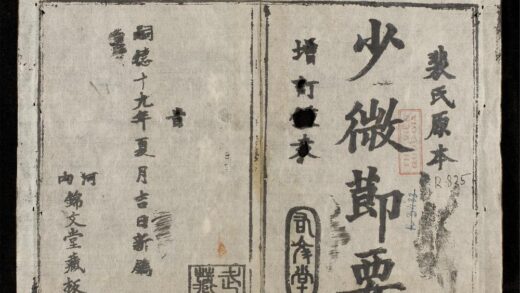 裴氏原本
R.835
少微莭要
增訂
嗣德十九年夏月吉日新鐫
河內
錦文堂藏板